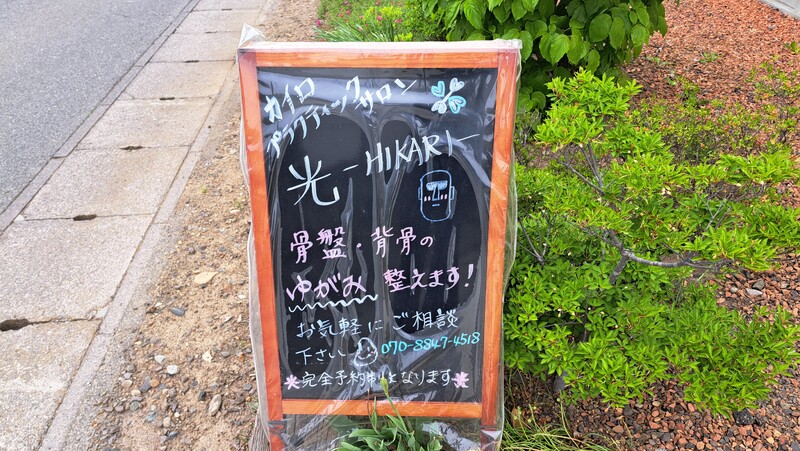 カイロ
プラクティックサロン
光-HIKARI-
骨盤・背骨の
ゆがみ 整えます!
お気軽にご相談
下さい 070-8847-4518
完全予約制となります